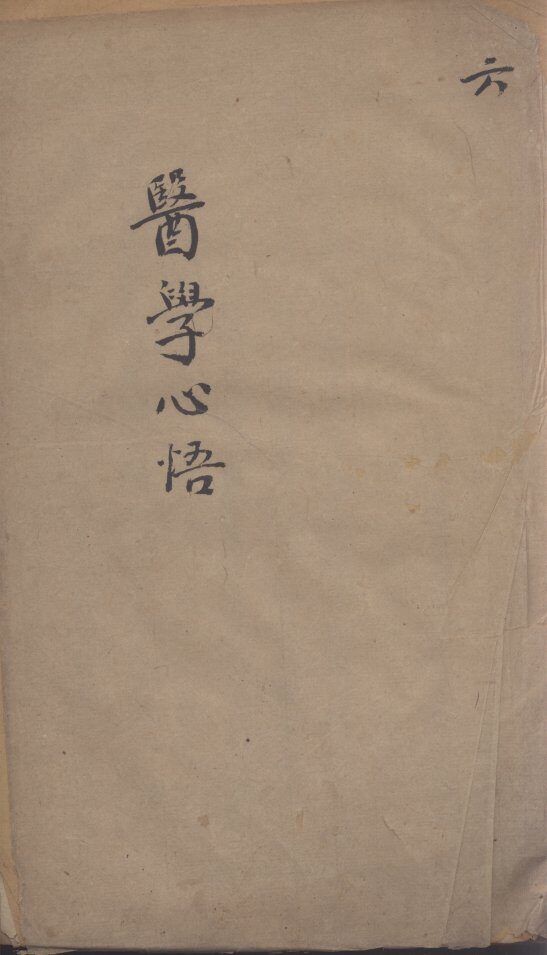 六
醫學心悟